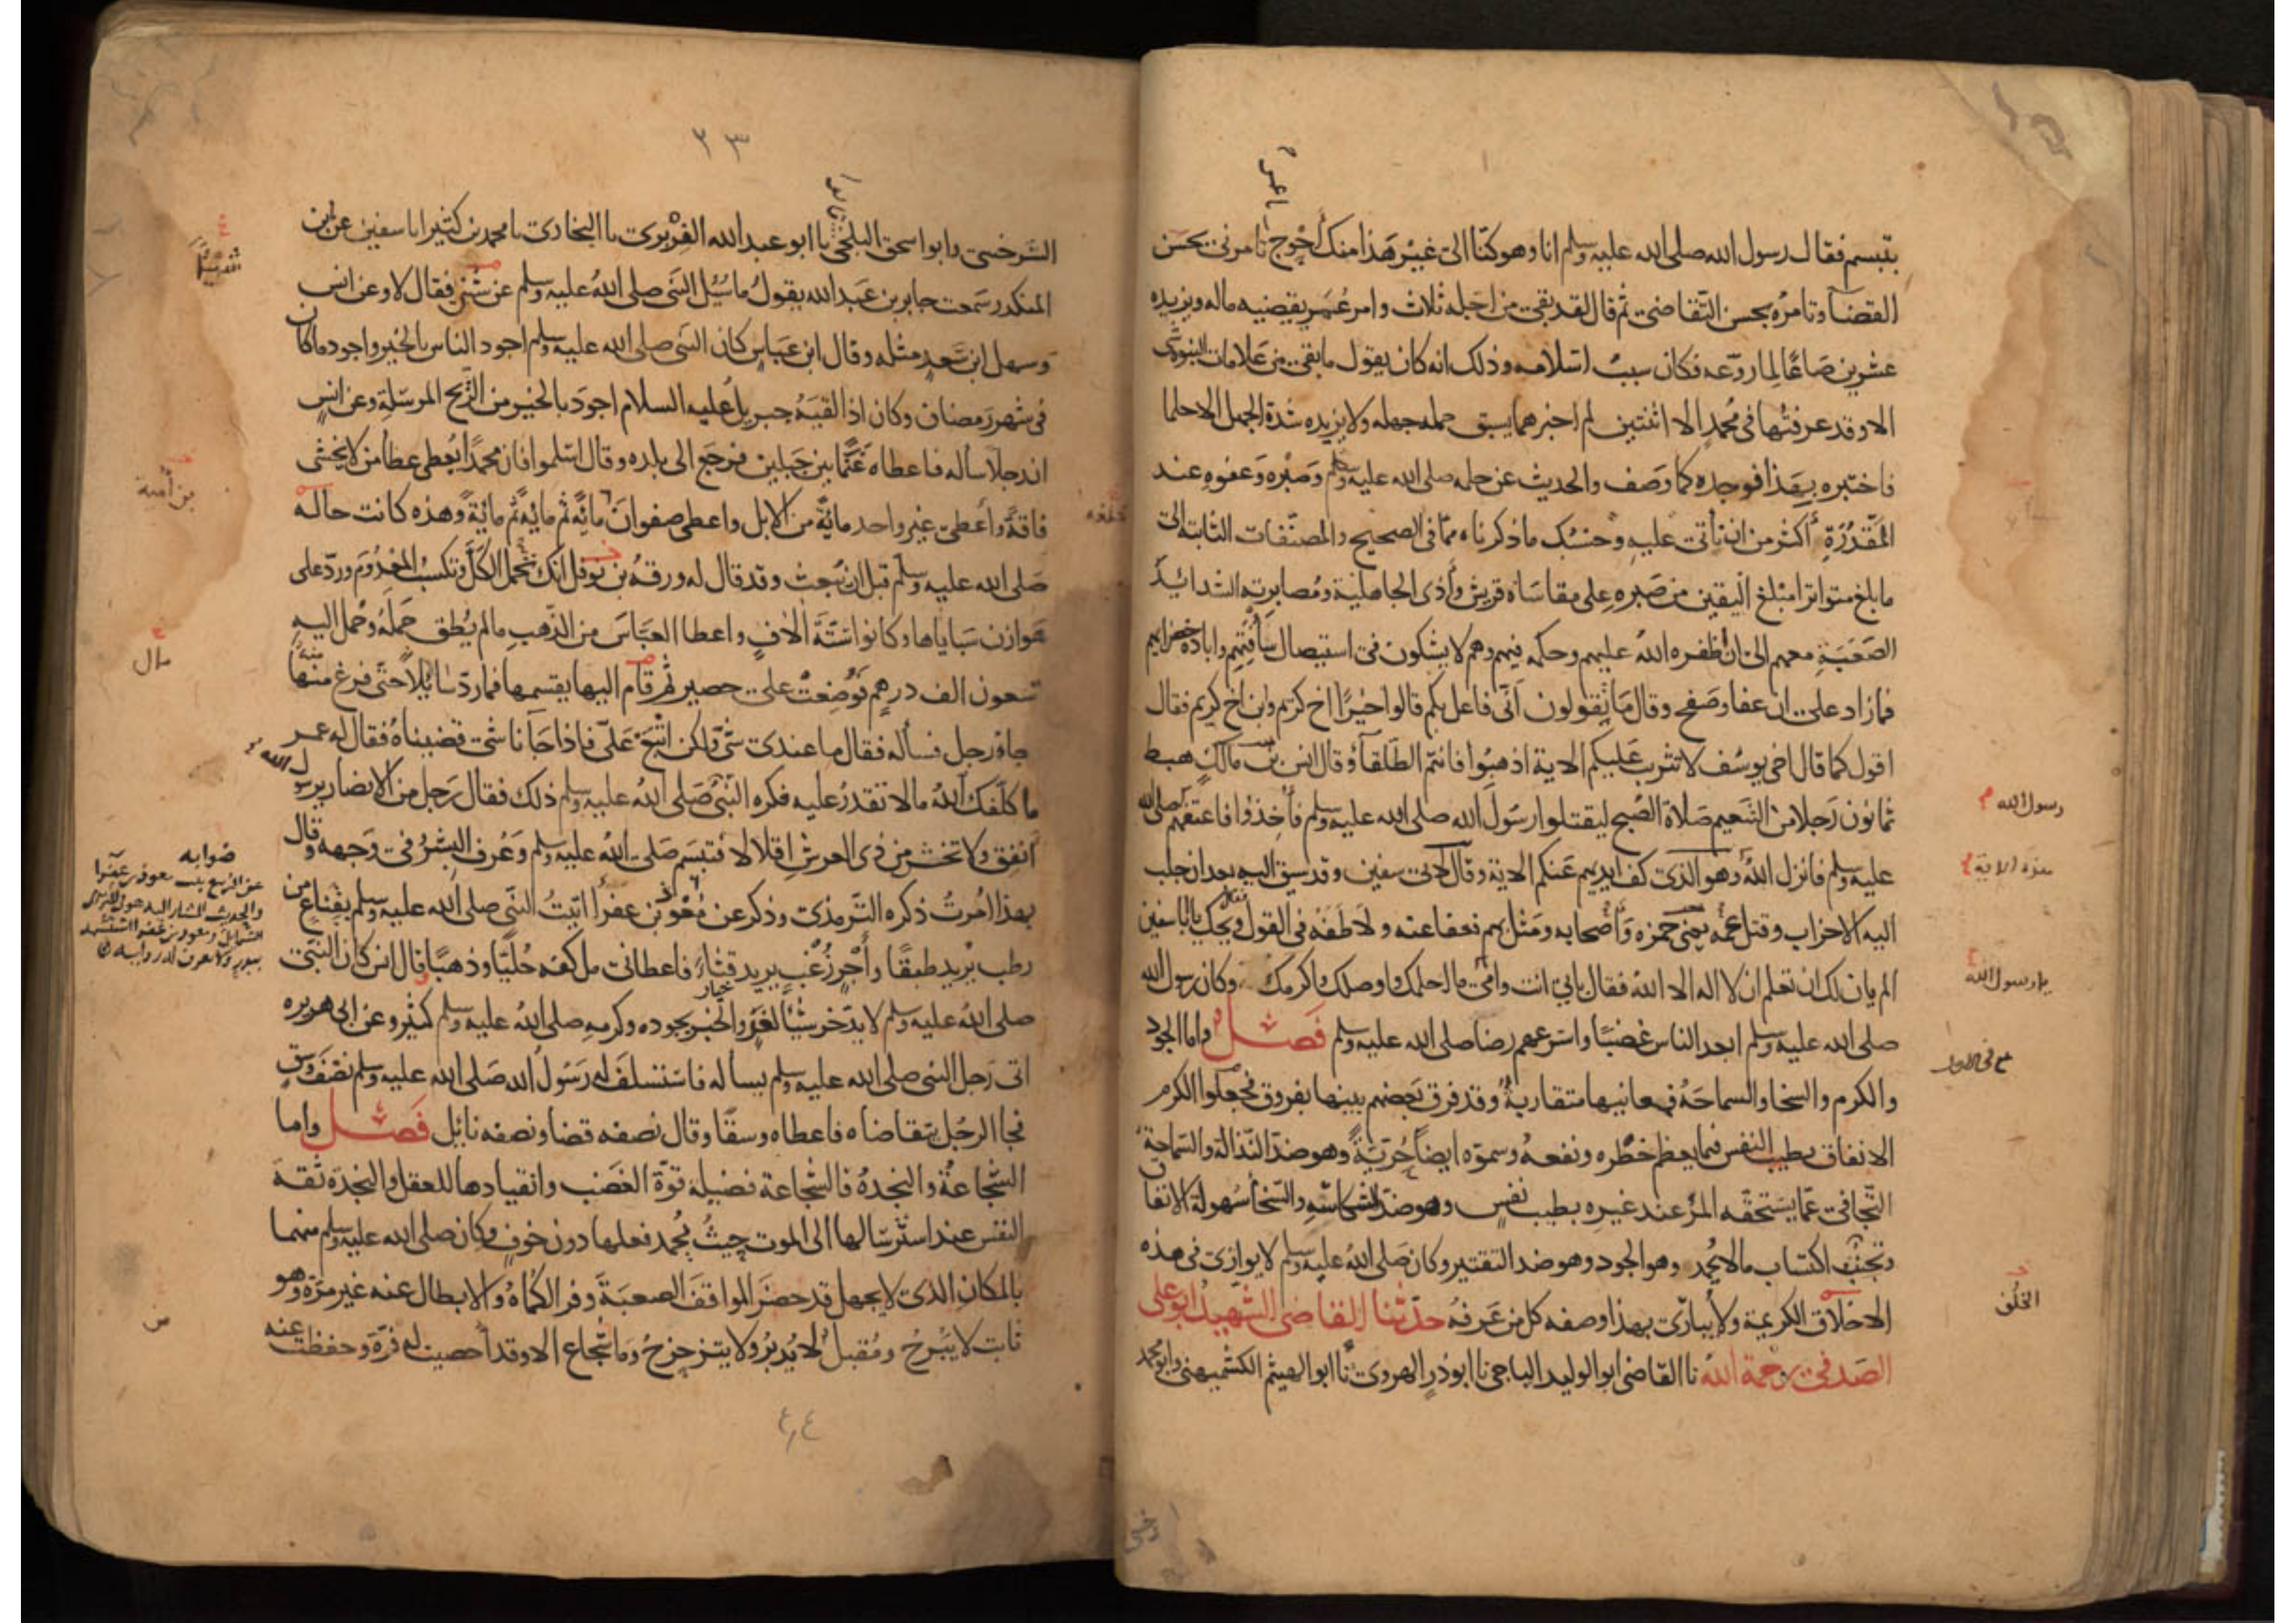 بتبسم فقال رسول الله صلى الله عليه وسلم انا وهو كنا الى غير هذا منك احوج تامرني بحسن
القضا وتامره بحسن التقاضي ثم قال لقد بقي من اجله ثلاث وامر عمر يقضيه ماله ويزيده
عشرين صاعا لما روعه فكان سبب اسلامه وذلك انه كان يقول ما بقي من علامات النبوة شي
الا وقد عرفتها في محمد الا اثنتين لم اخبرهما يسبق حلمه جهله ولا يزيده شدة الجهل الا حلما
فاختبره بهذا فوجده كما وصف والحديث عن حلمه صلى الله عليه وسلم وصبره وعفوه عند
المقدرة أكثر من ان ناتي عليه وحسبك ما ذكرناه مما في الصحيح والمصنفات الثابتة الى
ما بلغ متواترا مبلغ اليقين من صبره على مقاساة قريش وأذى الجاهلية ومصابرته الشدائد
الصعبة معهم الى ان ظفره الله عليهم وحكمه فيهم وهم لا يشكون في استيصال شأفتهم وابادة خضرايهم
فما زاد على ان عفا وصفح وقال ما تقولون أني فاعل بكم قالوا خيرا اخ كريم وابن اخ كريم فقال
اقول كما قال اخي يوسف لا تثريب عليكم الاية اذهبوا فانتم الطلقا وقال انس بن مالك هبط
ثمانون رجلا من التنعيم صلاة الصبح ليقتلوا رسول الله صلى الله عليه وسلم فأخذوا فاعتقهم صلى الله
رسول الله
عليه وسلم فانزل الله وهو الذي كف ايديهم عنكم الاية وقال لابي سفين وقد سيق اليه بعد ان جلب
هذه الاية
اليه الاحزاب وقتل عمه يعني حمزه وأصحابه ومثل بهم فعفا عنه ولاطفه في القول ويحك يا ابا سفين
الم يان لك ان تعلم ان لا اله الا الله فقال بابي انت وامي ما احلمك واوصلك واكرمك وكان رسول الله
يا رسول الله
صلى الله عليه وسلم ابعد الناس غضبا واسرعهم رضا صلى الله عليه وسلم فصل واما الجود
والكرم والسخا والسماحة فمعانيها متقاربة وقد فرق بعضهم بينها بفروق فجعلوا الكرم
الانفاق بطيب النفس فيما يعظم خطره ونفعه وسموه ايضا حرية وهو ضد النذالة والسماحة
التجافي عما يستحقه المرء عند غيره بطيب نفس وهو ضد الشكاسة والسخا سهولة الانفاق
وتجنب اكتساب ما لا يحمد وهو الجود وهو ضد التقتير وكان صلى الله عليه وسلم لا يوازى في هذه
الاخلاق الكريمة ولا يبارى بهذا وصفه كل من عرفه حدثنا القاضي الشهيد ابو علي
الخلق
الصدفي رحمة الله نا القاضي ابو الوليد الباجي نا ابو ذر الهروي نا ابو الهيثم الكشميهني وابو محمد
٢٣
السرخسي وابو اسحق البلخي نا ابو عبد الله الفربري نا البخاري نا محمد بن كثير انا سفين عن ابن
المنكدر سمعت جابر بن عبد الله يقول ما سئل النبي صلى الله عليه وسلم عن شي فقال لا وعن انس
وسهل ابن سعد مثله وقال ابن عباس كان النبي صلى الله عليه وسلم اجود الناس بالخير واجود ما كان
في شهر رمضان وكان اذا لقيه جبريل عليه السلام اجود بالخير من الريح المرسلة وعن انس
ان رجلا ساله فاعطاه غنما بين جبلين فرجع الى بلده وقال اسلموا فان محمدا يعطي عطا من لا يخشى
بن أمية
فاقة وأعطى غير واحد مائة من الابل واعطى صفوان مائة ثم مائة ثم مائة وهذه كانت حاله
صلى الله عليه وسلم قبل ان يبعث وقد قال له ورقة بن نوفل انك تحمل الكل وتكسب المعدوم ورد على
هوازن سباياها وكانوا ستة الاف واعطا العباس من الذهب ما لم يطق حمله وحمل اليه
مال
تسعون الف درهم فوضعت على حصير ثم قام اليها يقسمها فما رد سائلا حتى فرغ منها
جاه رجل فسأله فقال ما عندي شي ولكن ابتع علي فاذا جانا شي قضيناه فقال له عمر
ما كلفك الله ما لا تقدر عليه فكره النبي صلى الله عليه وسلم ذلك فقال رجل من الانصار يرسول الله
انفق ولا تخش من ذي العرش اقلالا فتبسم صلى الله عليه وسلم وعرف البشر في وجهه وقال
بهذا امرت ذكره الترمذي وذكر عن معوذ بن عفرا اتيت النبي صلى الله عليه وسلم بقناع من
صوابه
عن الربيع بنت معوذ بن عفرا
رطب يريد طبقا وأجر زغب يريد قثاء فاعطاني مل كفه حليا وذهبا قال انس كان النبي
صلى الله عليه وسلم لا يدخر شيئا لغد والخبر بجوده وكرمه صلى الله عليه وسلم كثير وعن ابي هريره
اتى رجل النبي صلى الله عليه وسلم يساله فاستسلف له رسول الله صلى الله عليه وسلم نصف وسق
فجا الرجل يتقاضاه فاعطاه وسقا وقال نصفه قضا ونصفه نائل فصل واما
الشجاعة والنجدة فالشجاعة فضيلة قوة الغضب وانقيادها للعقل والنجدة ثقة
النفس عند استرسالها الى الموت حيث يحمد فعلها دون خوف وكان صلى الله عليه وسلم منهما
بالمكان الذي لا يجهل قد حضر المواقف الصعبة وفر الكماة والابطال عنه غير مرة وهو
ثابت لا يبرح ومقبل لا يدبر ولا يتزحزح وما شجاع الا وقد احصيت له فرة وحفظت عنه